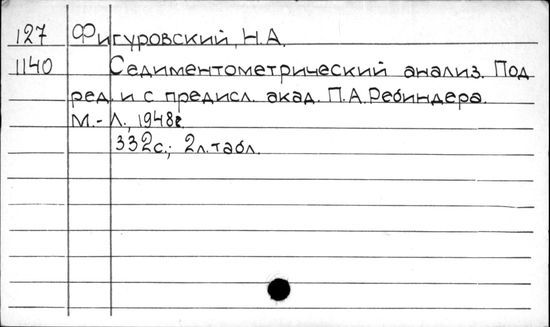 127 Фигуровский, Н.А.
1140 Седиментометрический анализ. Под
ред. и с предисл. акад. П.А.Ребиндера.
М.-Л., 1948г.
332с.; 2л.табл.